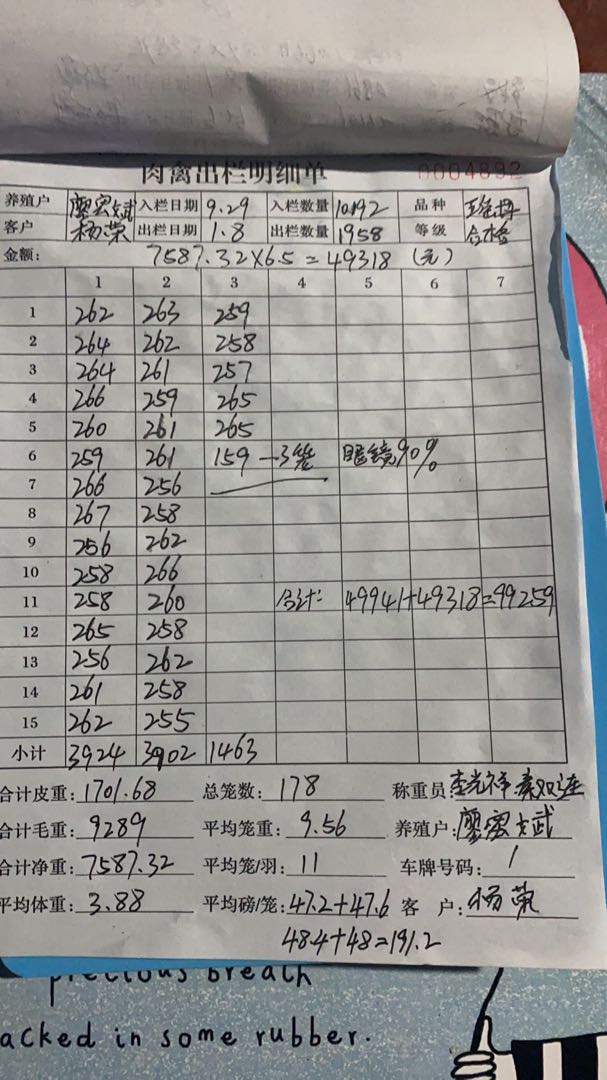 肉禽出栏明细单 0004892
养殖户 廖宏斌 入栏日期 9.29 入栏数量 10192 品种
客户 杨荣 出栏日期 1.8 出栏数量 1958 等级 合格
金额: 7587.32×6.5=49318 (元)
1 2 3 4 5 6 7
1 262 263 259
2 264 262 258
3 264 261 257
4 266 259 265
5 260 261 265
6 259 261 159 一3笼 眼镜90%
7 266 256
8 267 258
9 256 262
10 258 266
11 258 260 合计: 49941+49318=99259
12 265 258
13 256 262
14 261 258
15 262 255
小计 3924 3902 1463
合计皮重: 1701.68 总笼数: 178 称重员
合计毛重: 9289 平均笼重: 9.56 养殖户: 廖宏斌
合计净重: 7587.32 平均笼/羽: 11 车牌号码: /
平均体重: 3.88 平均磅/笼: 47.2+47.6 客 户: 杨荣
48.4+48=191.2
precious breath
acked in some rubber.